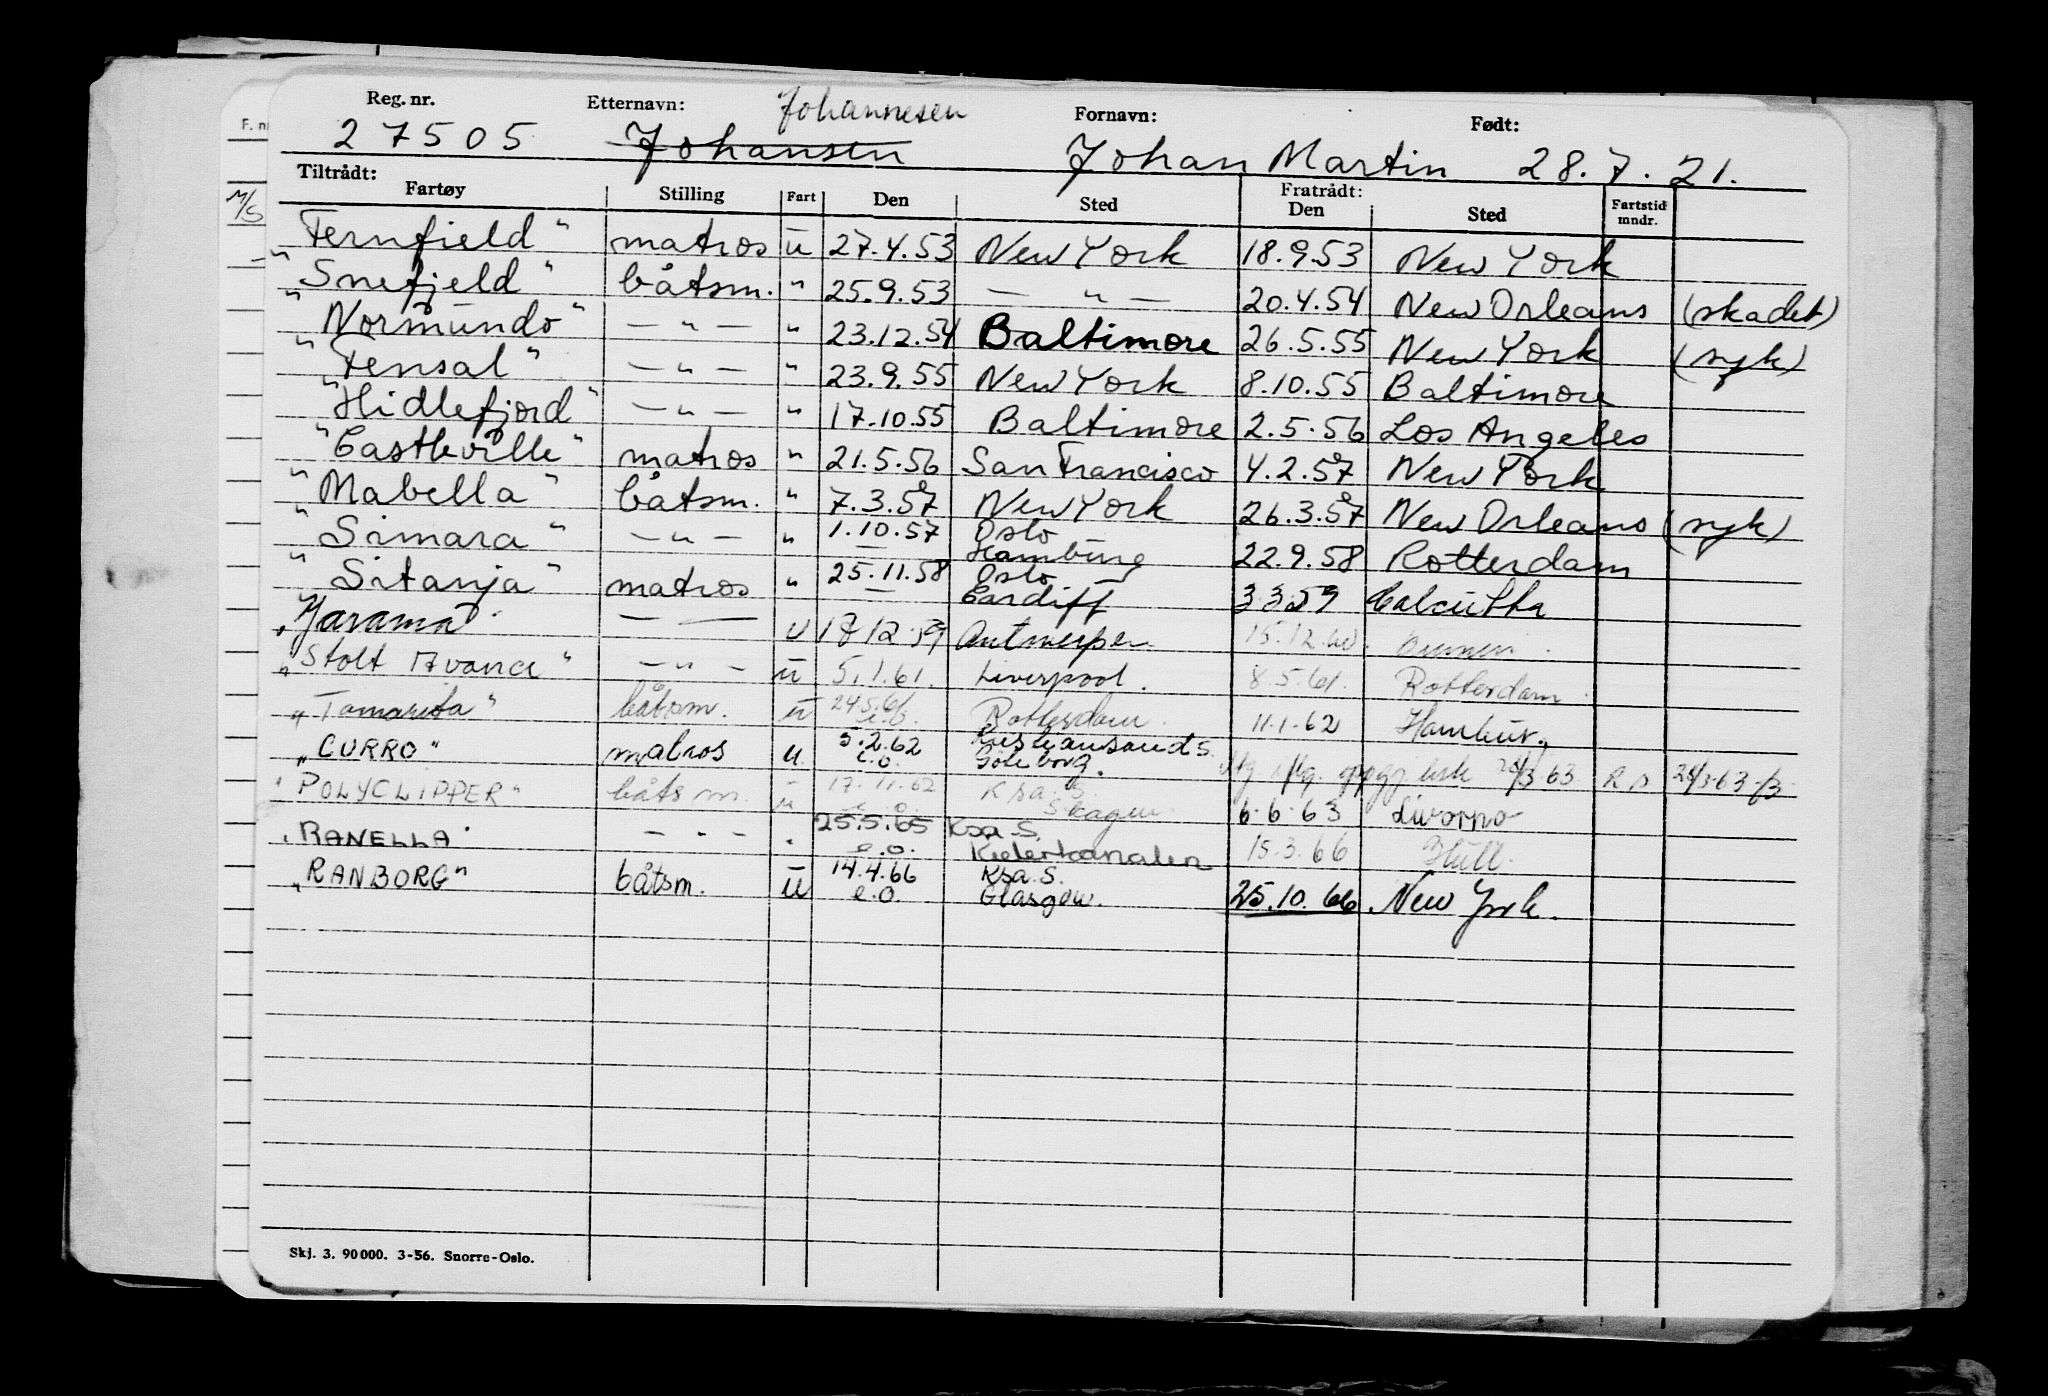 Reg. nr. Etternavn: Johannesen Fornavn: Født:
27505 Johansen Johan Martin 28.7.21.
Tiltrådt: Fratrådt:
Fartøy Stilling Fart Den Sted Den Sted Fartstid mndr.
F. n
M/S
"Fernfield" matros u 27.4.53 New York 18.9.53 New York
"Snefjeld" båtsm. " 25.9.53 — " — 20.4.54 New Orleans (skadet)
"Normundo" — " — " 23.12.54 Baltimore 26.5.55 New York (syk)
"Fensal" — " — " 23.9.55 New York 8.10.55 Baltimore
"Hidlefjord" — " — " 17.10.55 Baltimore 2.5.56 Los Angeles
"Castleville" matros " 21.5.56 San Francisco 4.2.57 New York
"Mabella" båtsm. " 7.3.57 New York 26.3.57 New Orleans (syk)
"Simara" — " — " 1.10.57 Oslo Hamburg 22.9.58 Rotterdam
"Sitanja" matros " 25.11.58 Oslo Cardiff 3.3.59 Calcutta
"Jarama" — — u 18.12.59 Antwerpen 15.12.60
"Stolt Avance" — " — u 5.1.61. Liverpool. 8.5.61. Rotterdam
"Tamarita" båtsm. u 24.5.61 e.o. Rotterdam. 11.1.62 Hamburg
"CURRO" matros u. 5.2.62 e.o. Kristiansand S. Göteborg. 26/3.63
"POLYCLIPPER" båtsm. u 17.11.62 e.o. Ksa. S. Skagen 6.6.63
"RANELLA" — " — " 25.5.65 e.o. Ksa. S. Kielerkanalen 15.3.66 Hull.
"RANBORG" båtsm. u 14.4.66 e.o. Ksa. S. Glasgow. 25.10.66 New York.
Skj. 3. 90000. 3-56. Snorre-Oslo.